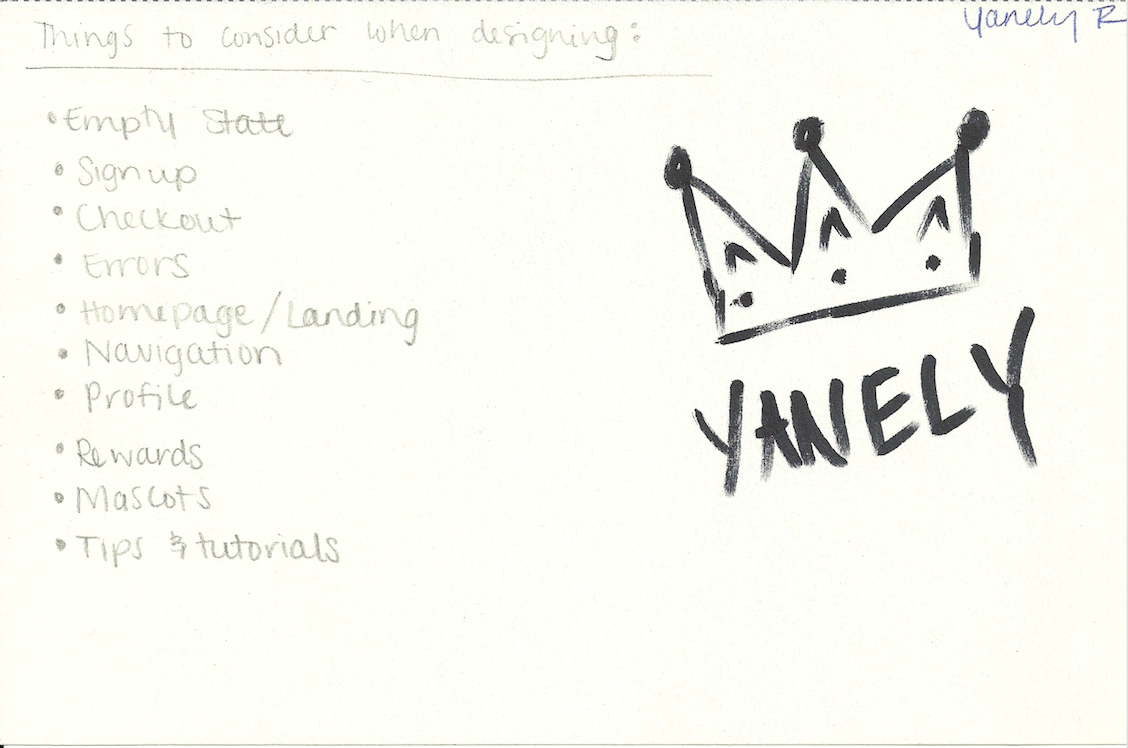 Things to consider when designing:
Yanely R
• Empty State
• Sign up
• Checkout
• Errors
• Homepage/Landing
• Navigation
• Profile
• Rewards
• Mascots
• Tips & tutorials
YANELY